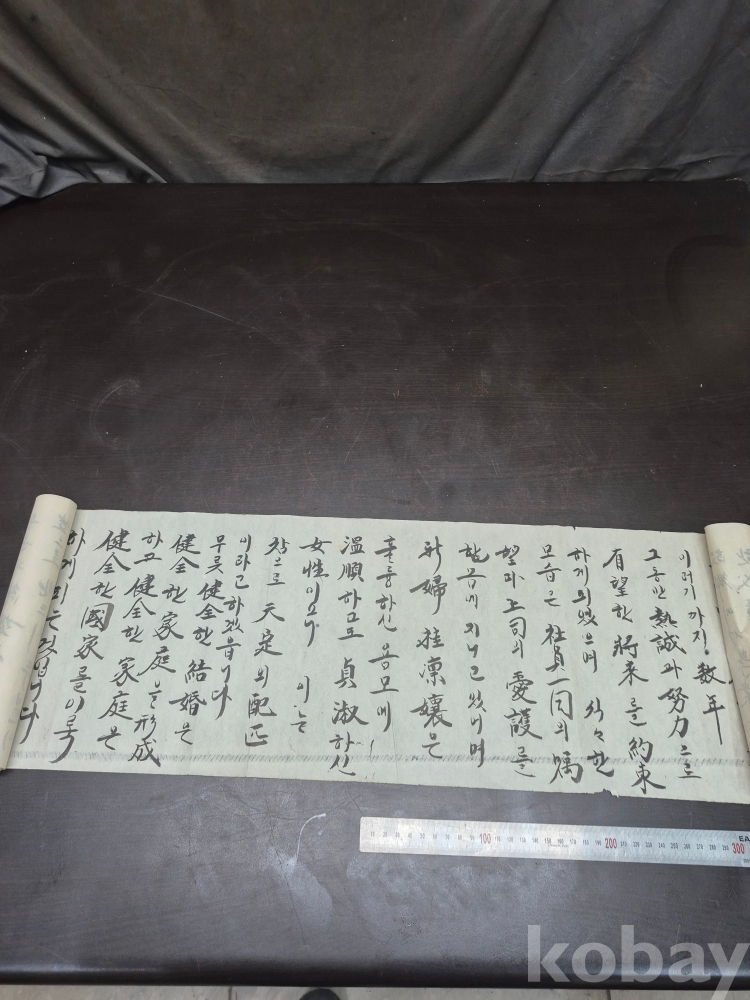 이러기까지 数年
그동안 熱誠과 努力으로
有望한 將来를 約束
하게 되였으며 한
모습은 社員一同의 嘱
望과 上司의 愛護를
한몸에 지니고 있으며
新婦 桂凛孃은
훌륭하신 용모에
温順하고 貞淑하신
女性이오 이는
참으로 天定의 配匹
이라고 하겠읍니다
무릇 健全한 結婚은
健全한 家庭을 形成
하고 健全한 家庭은
健全한 國家를 이룩
하게 되는 것입니다
100 200 300
kobay